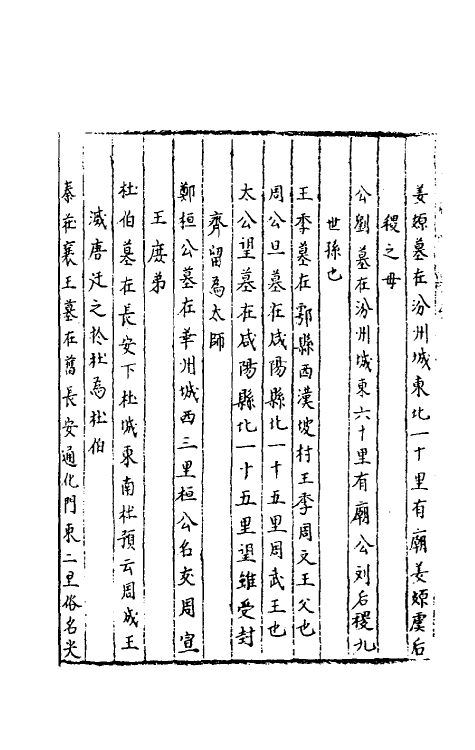 姜嫄墓在汾州城東北一十里有廟姜嫄虞后
稷之母
公劉墓在汾州城東六十里有廟公刘后稷九
世孫也
王季墓在鄠縣西漢坡村王季周文王父也
周公旦墓在咸陽縣北一十五里周武王也
太公望墓在咸陽縣北一十五里望雖受封
齊留為太師
鄭桓公墓在華州城西三里桓公名友周宣
王庻弟
杜伯墓在長安下杜城東南杜預云周成王
滅唐迁之於杜為杜伯
秦莊襄王墓在舊長安通化門東二里俗名尖